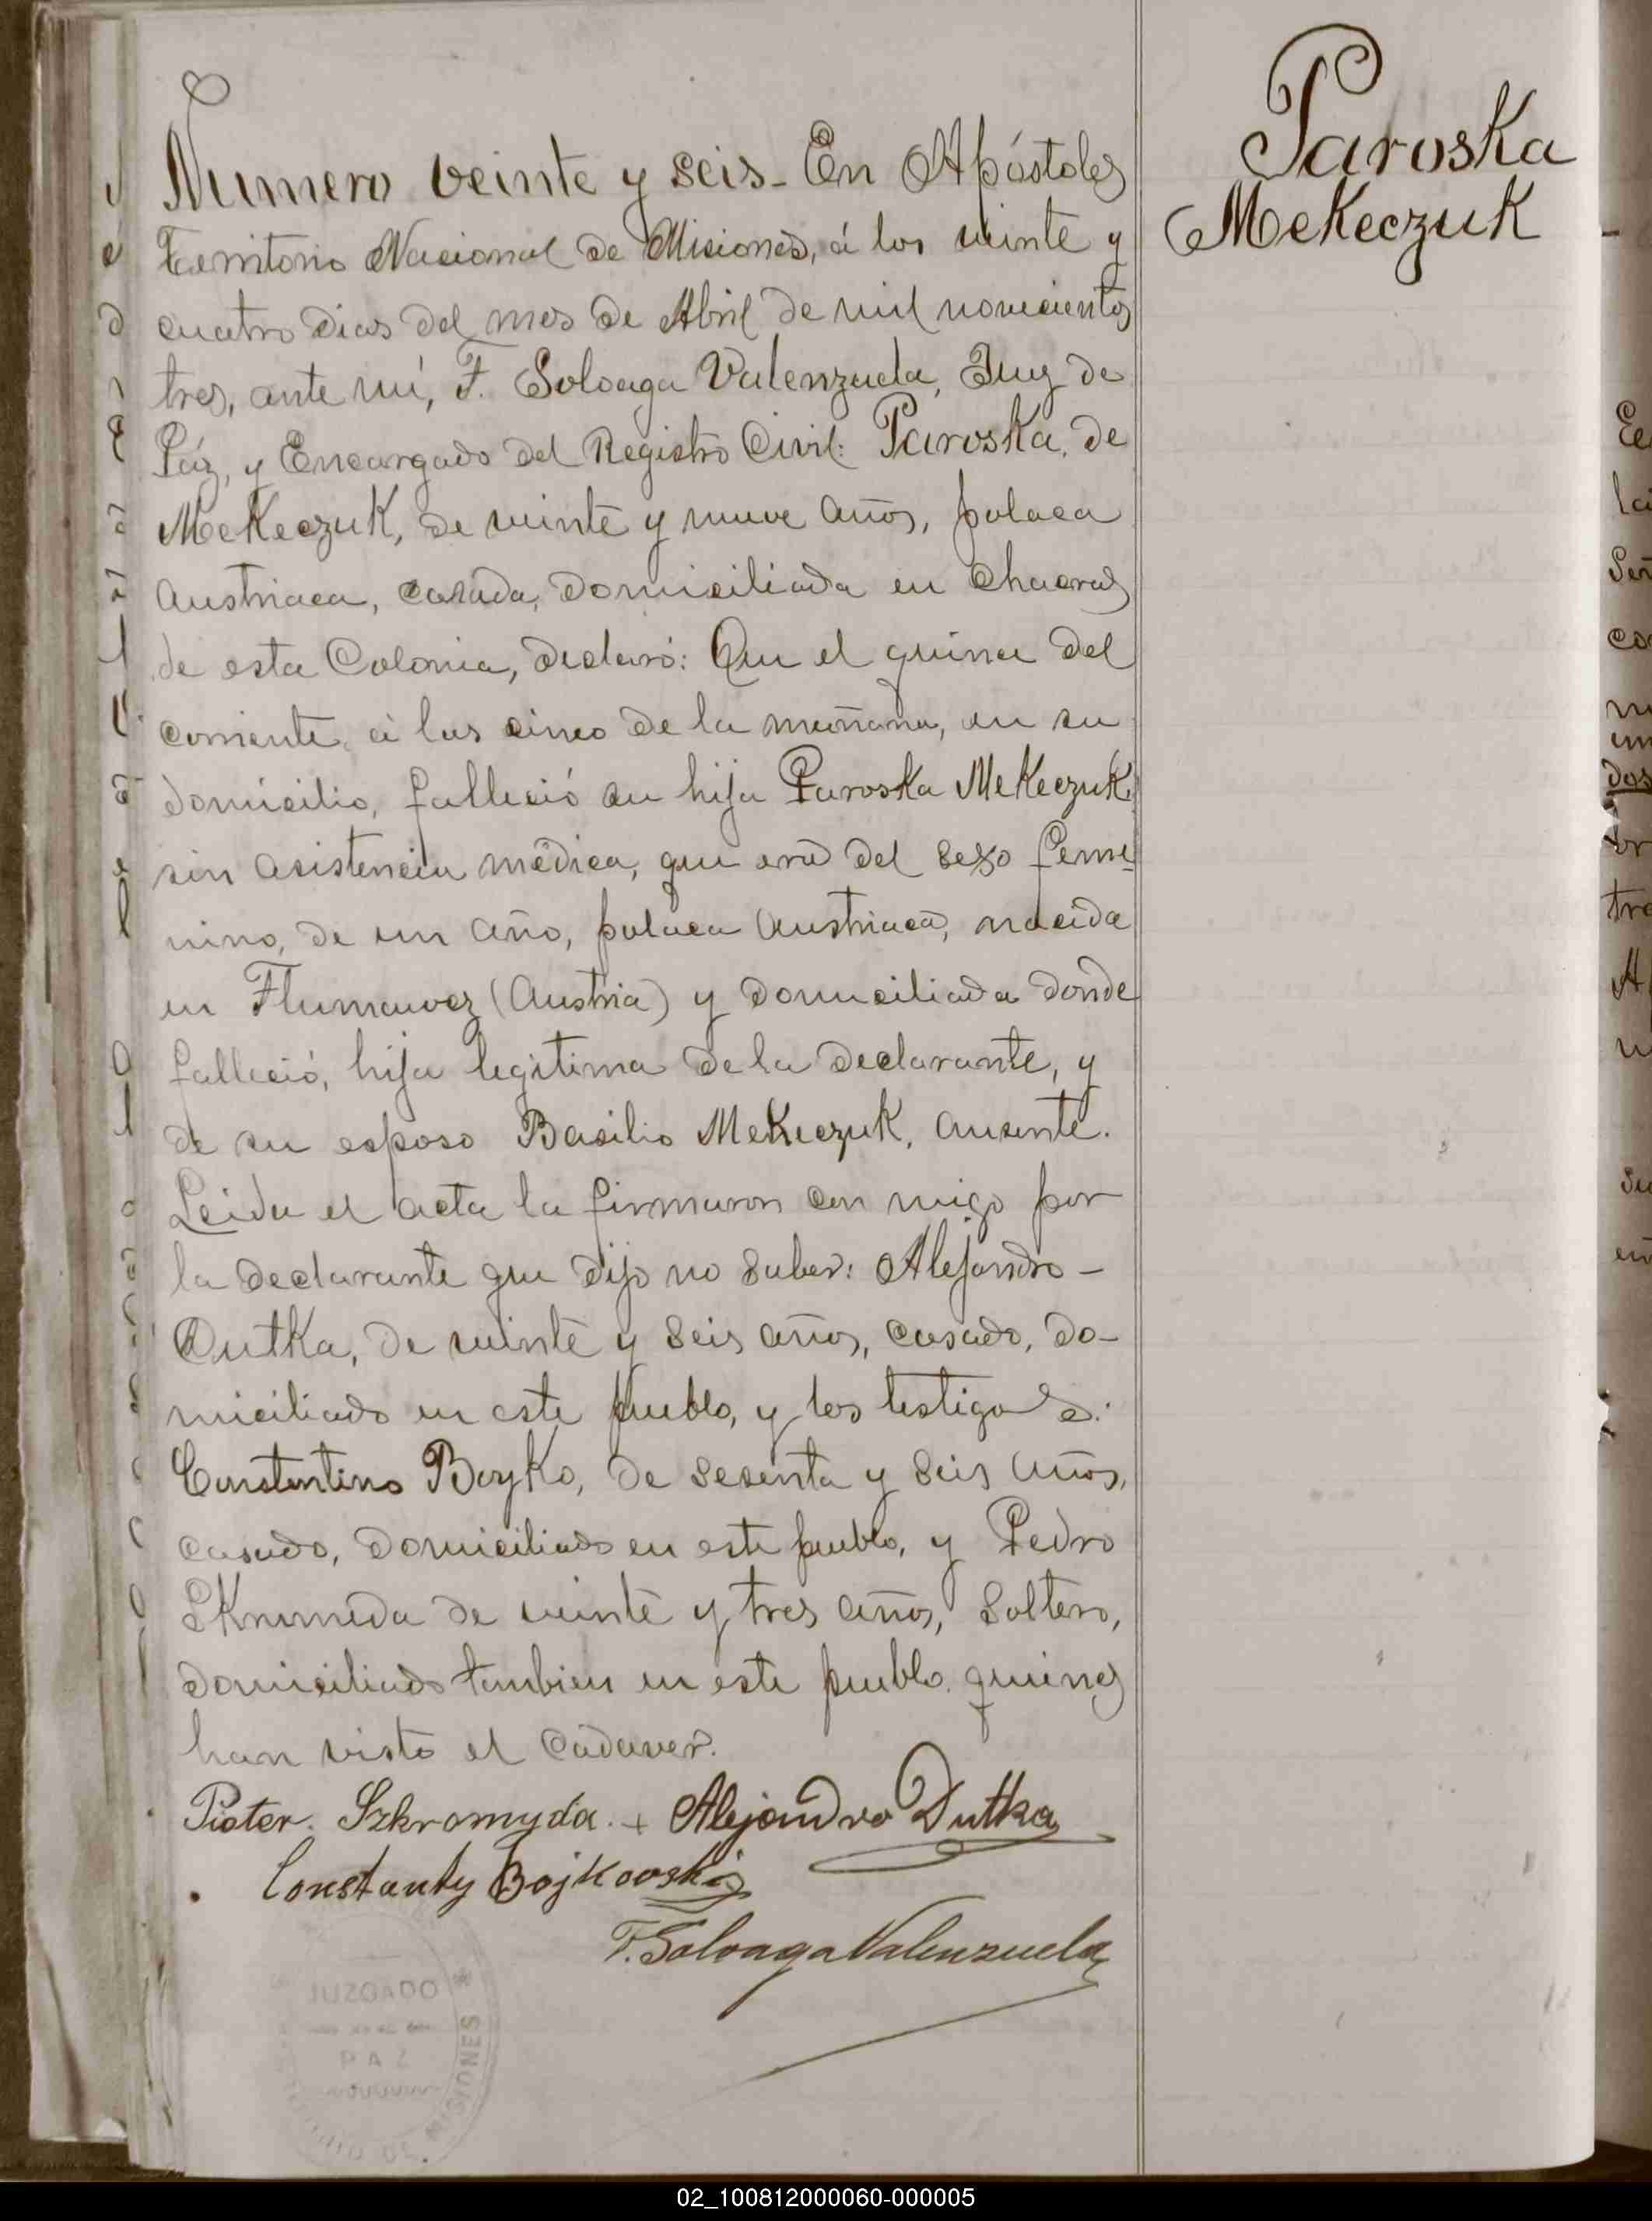 Paroska
Mekeczuk
Numero veinte y seis - En Apóstoles
Territorio Nacional de Misiones, á los veinte y
cuatro dias del mes de Abril de mil novecientos
tres, ante mi, F. Soloaga Valenzuela, Juez de
Páz, y Encargado del Registro Civil: Paroska, de
Mekeczuk, de veinte y nueve años, polaca
Austriaca, casada, domiciliada en Chacras
de esta Colonia, declaró: Que el quince del
corriente, á las cinco de la mañana, en su
domicilio, falleció su hija Paroska Mekeczuk,
sin asistencia médica, que era del sexo feme
nino, de un año, polaca Austriaca, nacida
en Flumawez (Austria) y domiciliada donde
falleció, hija legitima de la declarante, y
de su esposo Basilio Mekeczuk, ausente.
Leida el acta la firmaron con migo por
la declarante que dijo no saber: Alejandro -
Dutka, de veinte y seis años, casado, do-
miciliado en este pueblo, y los testigos:
Constantino Boyko, de sesenta y seis años,
casado, domiciliado en este pueblo, y Pedro
Skrumeda de veinte y tres años, soltero,
domiciliado tambien en este pueblo. quines
han visto el cadaver.
Pioter. Szkromyda. + Alejandro Dutka
Constanty Bojkowski
F. Soloaga Valenzuela
JUZGADO
PAZ
MISIONES
02_100812000060-000005